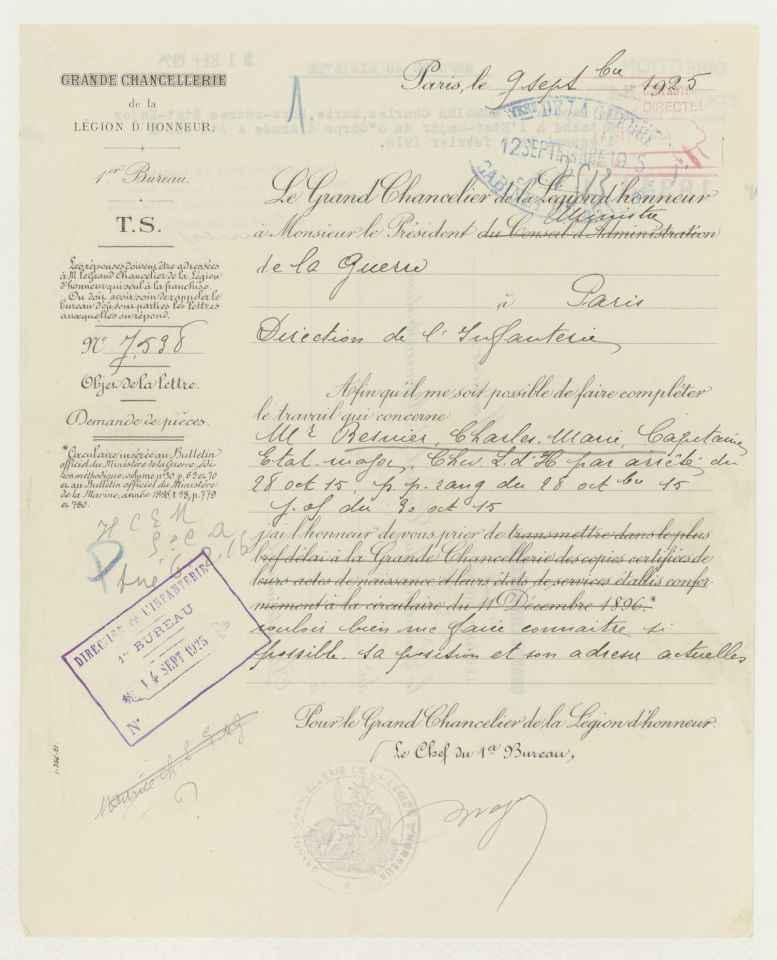 GRANDE CHANCELLERIE
de la
LÉGION D'HONNEUR.
1er Bureau.
T.S.
Les réponses doivent être adressées
à M. le Grand Chancelier de la Légion
d'honneur qui seul a la franchise.
On doit avoir soin de rappeler le
bureau d'où sont parties les lettres
auxquelles on répond.
N° 7,538
Objet de la lettre.
Demande de pièces.
* Circulaire insérée au Bulletin
officiel du Ministère de la Guerre, édi-
tion méthodique, volume n° 30, p. 69 et 70
et au Bulletin officiel du Ministère
de la Marine, année 1896, p. 779
et 780.
H C E M
DIRECTION DE L'INFANTERIE
1er BUREAU
14 SEPT 1925
N°
1-356-21.
1
Paris, le 9 sept bre 1925
DE LA GUERRE
12 SEPTEMBRE 19 5
CABINET
DIRECTEU
Le Grand Chancelier de la Légion d'honneur
Ministre
à Monsieur le Président du Conseil d'Administration
de la Guerre
à Paris
Direction de l'Infanterie
Afin qu'il me soit possible de faire compléter
le travail qui concerne
Mr Besnier, Charles, Marie, Capitaine
Etat-major, Chev. L. d'H par arrêté du
28 oct 15, p. p. rang du 28 oct bre 15
j. of du 30 oct 15
j'ai l'honneur de vous prier de transmettre dans le plus
bref délai à la Grande Chancellerie des copies certifiées de
leurs actes de naissance et leurs états de services établis confor-
mément à la circulaire du 11 Décembre 1896.*
vouloir bien me faire connaître si
possible, sa position et son adresse actuelles
Pour le Grand Chancelier de la Légion d'honneur.
Le Chef du 1er Bureau,
GRANDE CHANCELLERIE DE LA LÉGION D'HONNEUR